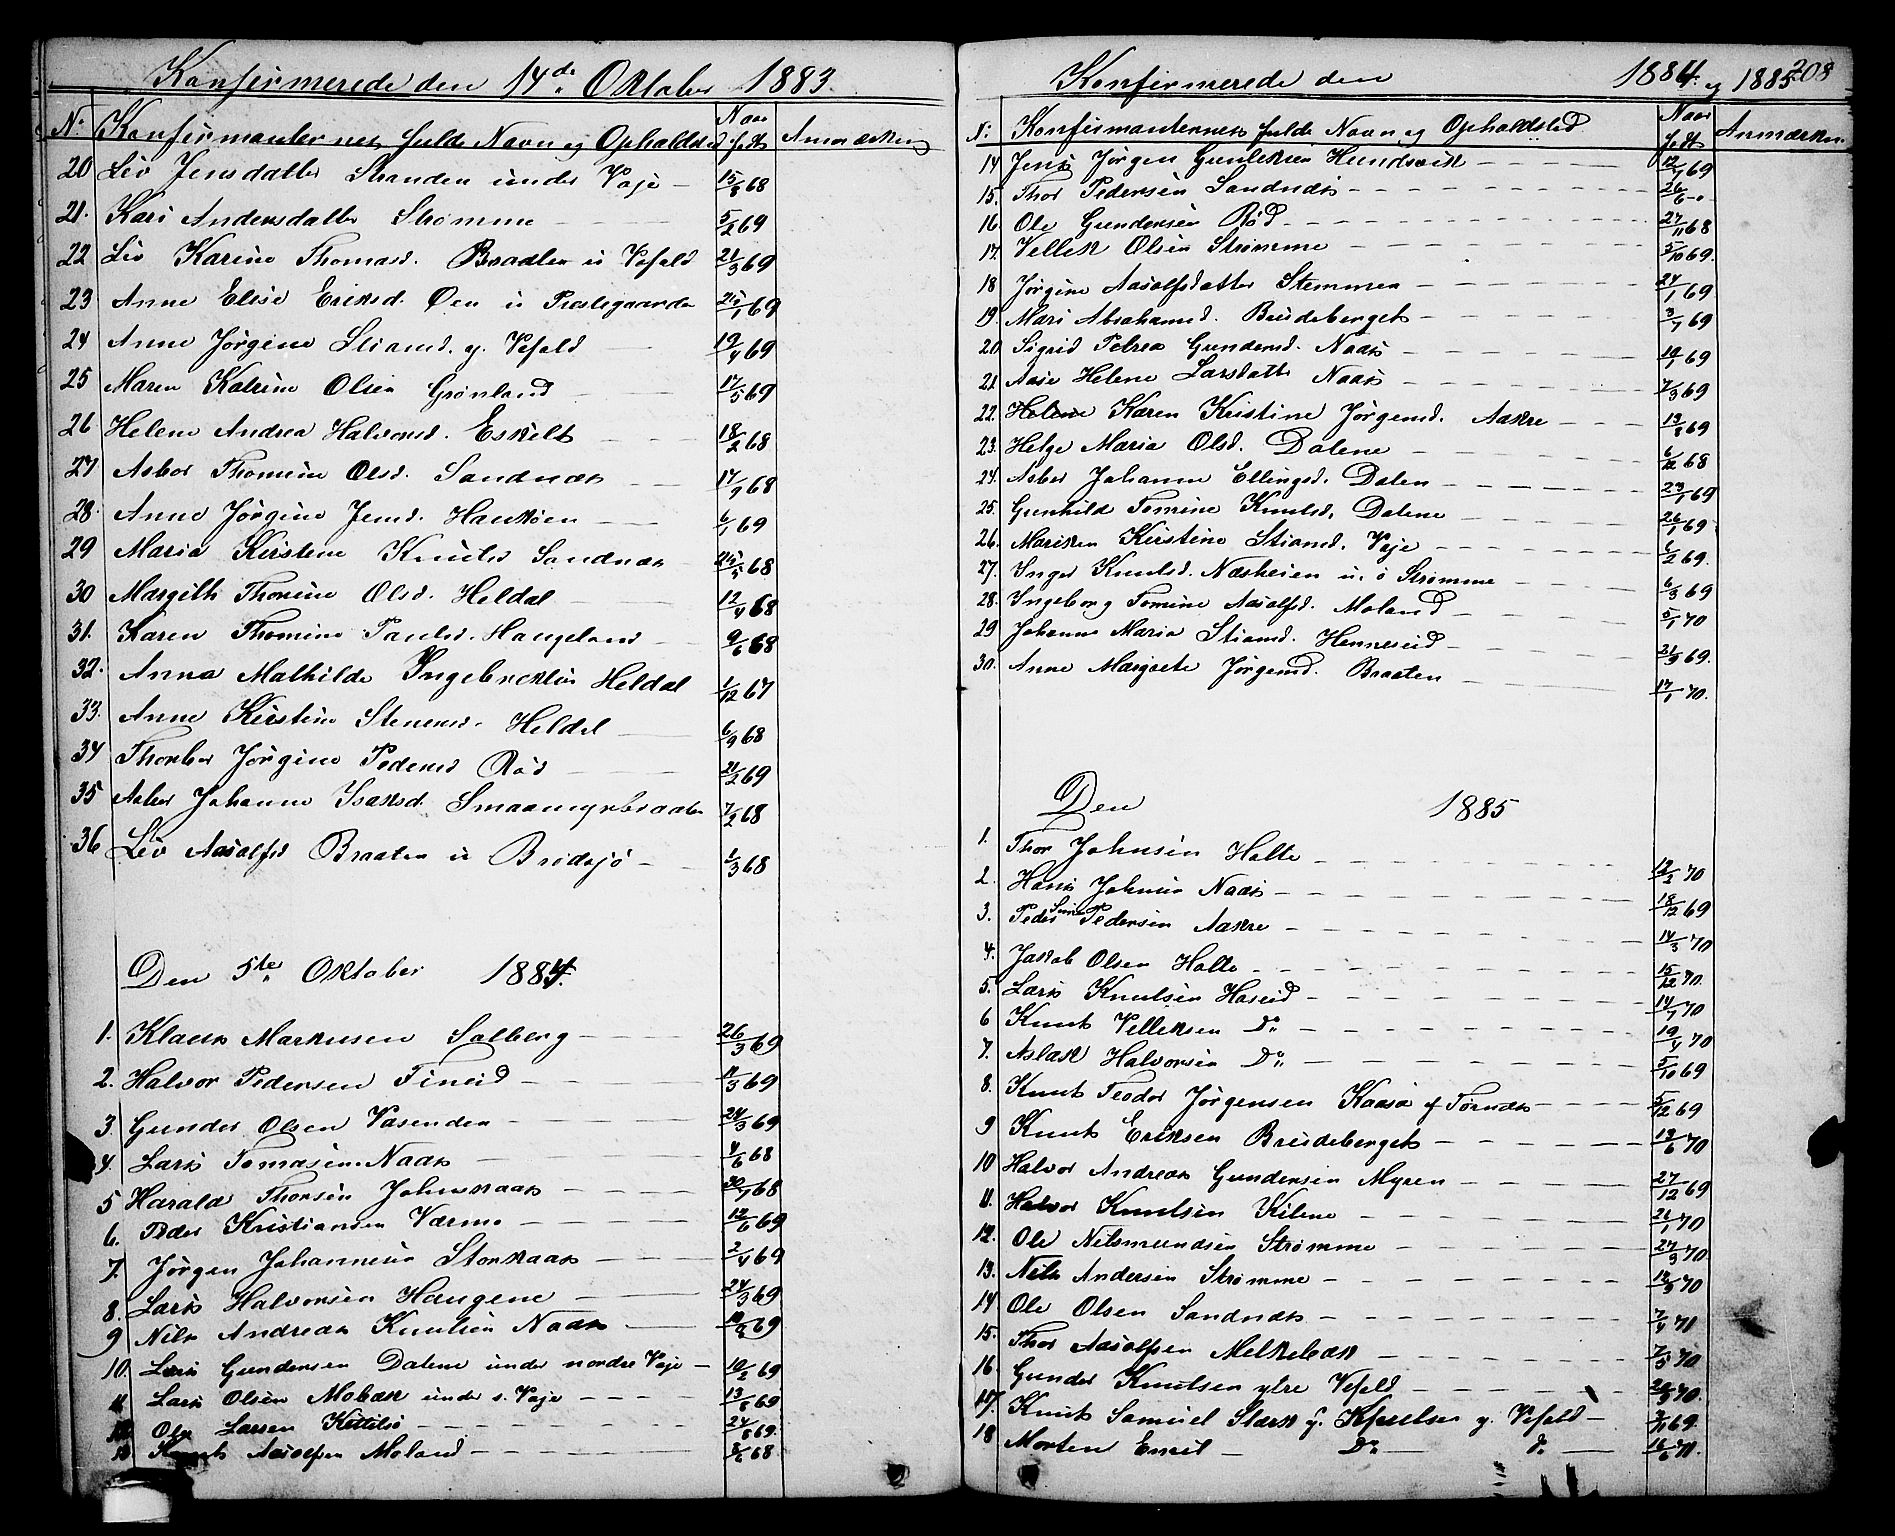 Konfirmerede den 14de Oktober 1883.
No Konfirmanternes fulde Navn og Opholdsted Naar født Anmærkning
20 Liv Jensdatter Stranden under Vaje 15/8 68
21. Kari Andersdatter Strømme 5/2 69
22 Liv Karine Thomasd. Braaten u Vefald 21/3 69
23 Anne Elise Eriksd. Øen u Prestegaarden 25/1 69
24 Anne Jørgine Stiansd. y. Vefald 19/4 69
25 Maren Katrine Olsen Grønland 17/5 69
26 Helene Andrea Halvorsd. Eskilt 18/2 68
27 Asbor Thomine Olsd. Sandnæs 17/9 68
28. Anne Jørgine Jensd. Haukøen 6/1 69
29 Maria Kirstene Knutsd Sandnæs 25/5 68
30 Margith Thorine Olsd. Heldal 12/4 68
31. Karen Thomine Paulsd. Haugeland 9/6 68
32. Anna Mathilde Ingebrektsen Heldal 1/12 67
33. Anne Kirstine Stenersd. Heldal 6/9 68
34 Thorbor Jørgine Pedersd Rød 21/2 69
35 Asbor Johanne Isaksd. Smaamyrbraaten 7/2 68
36 Liv Aasolfsd Braaten u Brødsjø 1/3 68
Den 5te Oktober 1884.
1. Klaus Markusen Solberg 26/3 69
2. Halvor Pedersen Tineid 11/3 69
3. Gunder Olsen Vasenden 24/3 69
4. Lars Tomasen Naas 4/6 68
5 Harald Thorsen Johnskaas 30/7 68
6. Peder Kristiansen Værme 12/6 69
7. Jørgen Johannesen Storkaas 2/4 69
8. Lars Halvorsen Haugene 24/3 69
9 Nils Andreas Knutsen Naas 69
10. Lars Gundersen Dalene under nordre Vaje 10/2 69
11 Lars Olsen Mobæk under s. Vaje 13/8 69
12 Ole Larsen Kittilsi 24/8 69
13 Knut Aasolfsen Moland 68
Konfirmerede den 1884. og 1885 208
No: Konfirmanternes fulde Navn og Opholdsted Naar født Anmærkn.
14 Jens Jørgen Gunleksen Hundsvik 12/1 69
15. Thor Pedersen Sandnæs 26/6 -"-
16. Ole Gundersen Rød 27/11 68
17. Vellek Olsen Strømme 5/10 69.
18 Jørgine Aasolfsdatter Stemmen 27/1 69
19. Mari Abrahamsd. Brudeberget 3/7 69
20 Sigrid Petrea Gundersd. Naas 69
21. Aase Helene Larsdatter Naas 7/3 69
22. Helene Karen Kristine Jørgensd. Aakre 13/8 69
23. Helge Maria Olsd. Dalene 6/12 68
24. Asbor Johanne Ellingsd. Dalen 23/5 69
25. Gunhild Tomine Knutsd. Dalene 26/1 69
26. Mariken Kirstine Stiansd. Vaje 6/2 69.
27. Inger Knutsd. Næsheien u. ø Strømme 6/3 69
28. Ingeborg Tomine Aasolfsd. Moland 5/1 70
29 Johanne Maria Stiansd. Henneseid 21/9 69.
30. Anne Margrete Jørgensd. Braaten 17/1 70.
Den 1885
1. Thor Johnsen Holte 12/2 70
2. Hans Johnsen Naas 18/12 69
3. Peder Pedersen Aakre 14/3 70
4. Jakob Olsen Holte 15/12 70.
5. Lars Knutsen Haseid 14/7 70
6 Knut Velleksen Do 19/4 70
7. Aslak Halvorsen Do 5/10 69
8. Knut Teodor Jørgensen Kaasa f Tørnæs 5/12 69
9 Knut Eriksen Brudeberget 13/6 70
10 Halvor Andreas Gundersen Myren 27/12 69
11. Halvor Knutsen Kilene 26/1 70
12. Ole Nilsmundsen Strømme 27/3 70
13. Nils Andersen Strømme 70
14 Ole Olsen Sandnæs 7/4 71
15. Thor Aasolfsen Melkebæk 7/5 70
16. Gunder Knutsen ytre Vefald 70.
17. Knut Samuel Stærk y. Vefald 69.
18 Morten Emil Do do 16/6 71.